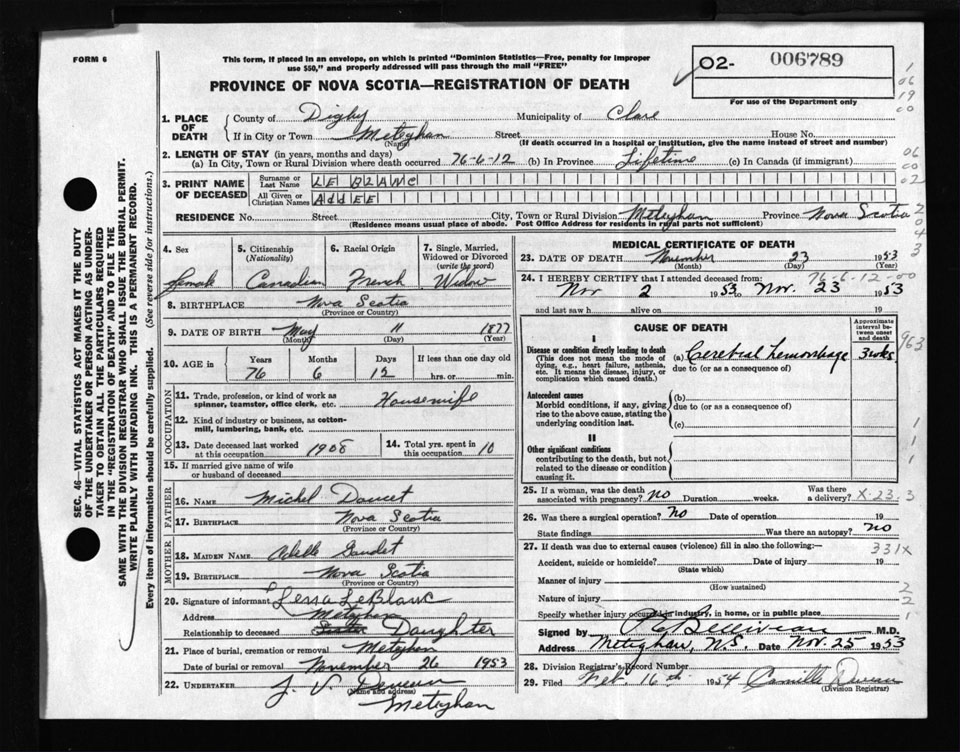 FORM 6
This form, if placed in an envelope, on which is printed "Dominion Statistics—Free, penalty for improper
use $50," and properly addressed will pass through the mail "FREE"
PROVINCE OF NOVA SCOTIA—REGISTRATION OF DEATH
02- 006789
For use of the Department only
SEC. 46—VITAL STATISTICS ACT MAKES IT THE DUTY
OF THE UNDERTAKER OR PERSON ACTING AS UNDER-
TAKER TO OBTAIN ALL THE PARTICULARS REQUIRED
IN THE "REGISTRATION OF DEATH" AND TO FILE THE
SAME WITH THE DIVISION REGISTRAR WHO SHALL ISSUE THE BURIAL PERMIT.
WRITE PLAINLY WITH UNFADING INK. THIS IS A PERMANENT RECORD.
Every item of information should be carefully supplied. (See reverse side for instructions.)
1. PLACE OF DEATH
County of Digby Municipality of Clare
If in City or Town Meteghan Street House No.
(Name) (If death occurred in a hospital or institution, give the name instead of street and number)
2. LENGTH OF STAY (in years, months and days)
(a) In City, Town or Rural Division where death occurred 76-6-12 (b) In Province Lifetime (c) In Canada (if immigrant)
3. PRINT NAME OF DECEASED
Surname or Last Name LE BLANC
All Given or Christian Names ADDEE
RESIDENCE No. Street City, Town or Rural Division Meteghan Province Nova Scotia
(Residence means usual place of abode. Post Office Address for residents in rural parts not sufficient)
4. Sex Female
5. Citizenship (Nationality) Canadian
6. Racial Origin French
7. Single, Married, Widowed or Divorced (write the word) Widow
8. BIRTHPLACE Nova Scotia
(Province or Country)
9. DATE OF BIRTH May 11 1877
(Month) (Day) (Year)
10. AGE in Years Months Days If less than one day old
76 6 12 hrs. or min.
OCCUPATION
11. Trade, profession, or kind of work as spinner, teamster, office clerk, etc. Housewife
12. Kind of industry or business, as cotton-mill, lumbering, bank, etc.
13. Date deceased last worked at this occupation 1908
14. Total yrs. spent in this occupation 10
15. If married give name of wife or husband of deceased
FATHER
16. NAME Michel Doucet
17. BIRTHPLACE Nova Scotia
(Province or Country)
MOTHER
18. MAIDEN NAME Gaudet
19. BIRTHPLACE Nova Scotia
(Province or Country)
20. Signature of informant LeBlanc
Address Meteghan
Relationship to deceased Sister Daughter
21. Place of burial, cremation or removal Meteghan
Date of burial or removal November 26 1953
22. UNDERTAKER J. V. Deveau
(Name and address)
Meteghan
MEDICAL CERTIFICATE OF DEATH
23. DATE OF DEATH November 23 1953
(Month) (Day) (Year)
76-6-12-00
24. I HEREBY CERTIFY that I attended deceased from:
Nov 2 1953 to Nov. 23 1953
and last saw h alive on 19
CAUSE OF DEATH
Approximate interval between onset and death
I
Disease or condition directly leading to death
(This does not mean the mode of dying, e.g., heart failure, asthenia, etc. It means the disease, injury, or complication which caused death.)
(a) Cerebral hemorrhage 3 wks
due to (or as a consequence of)
Antecedent causes
Morbid conditions, if any, giving rise to the above cause, stating the underlying condition last.
(b)
due to (or as a consequence of)
(c)
II
Other significant conditions
contributing to the death, but not related to the disease or condition causing it.
25. If a woman, was the death associated with pregnancy? no Duration weeks. Was there a delivery? X-23
26. Was there a surgical operation? no Date of operation 19
State findings Was there an autopsy? no
27. If death was due to external causes (violence) fill in also the following:— 331X
Accident, suicide or homicide? Date of injury 19
(State which)
Manner of injury
(How sustained)
Nature of injury
Specify whether injury occurred in industry, in home, or in public place
Signed by Belliveau M.D.
Address Meteghan, N.S. Date Nov. 25 1953
28. Division Registrar's Record Number
29. Filed Feb. 16th 1954 Camille Deveau
(Division Registrar)